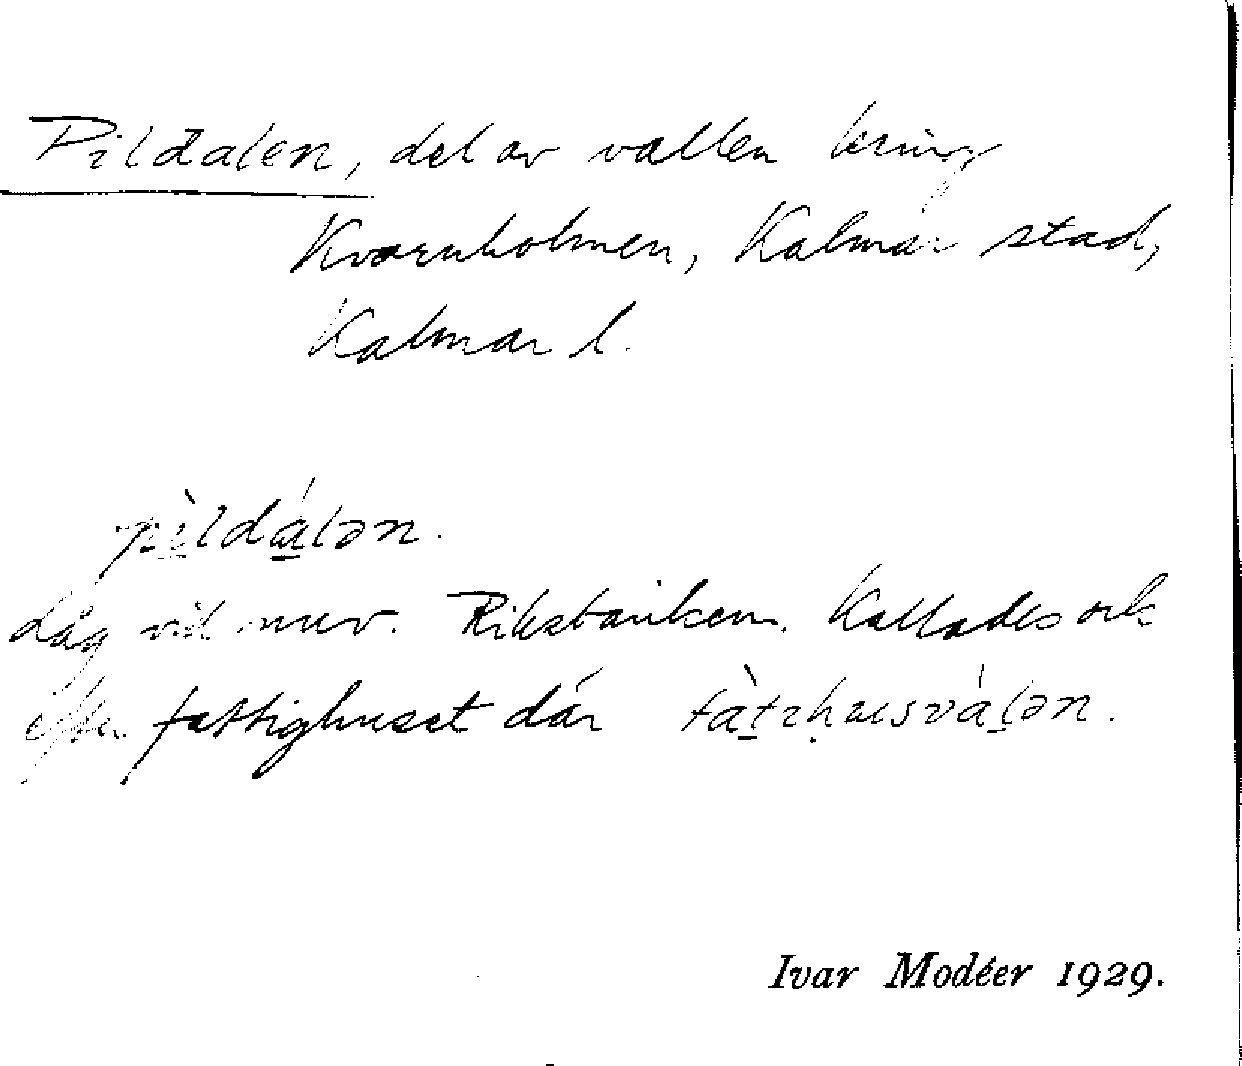 Pildalen, del av vallen kring
Kvarnholmen, Kalmar stad,
Kalmar l.
pìldálən.
Låg vid nuv. Riksbanken. Kallades ock
efter fattighuset där fàtıhusválən.
Ivar Modéer 1929.